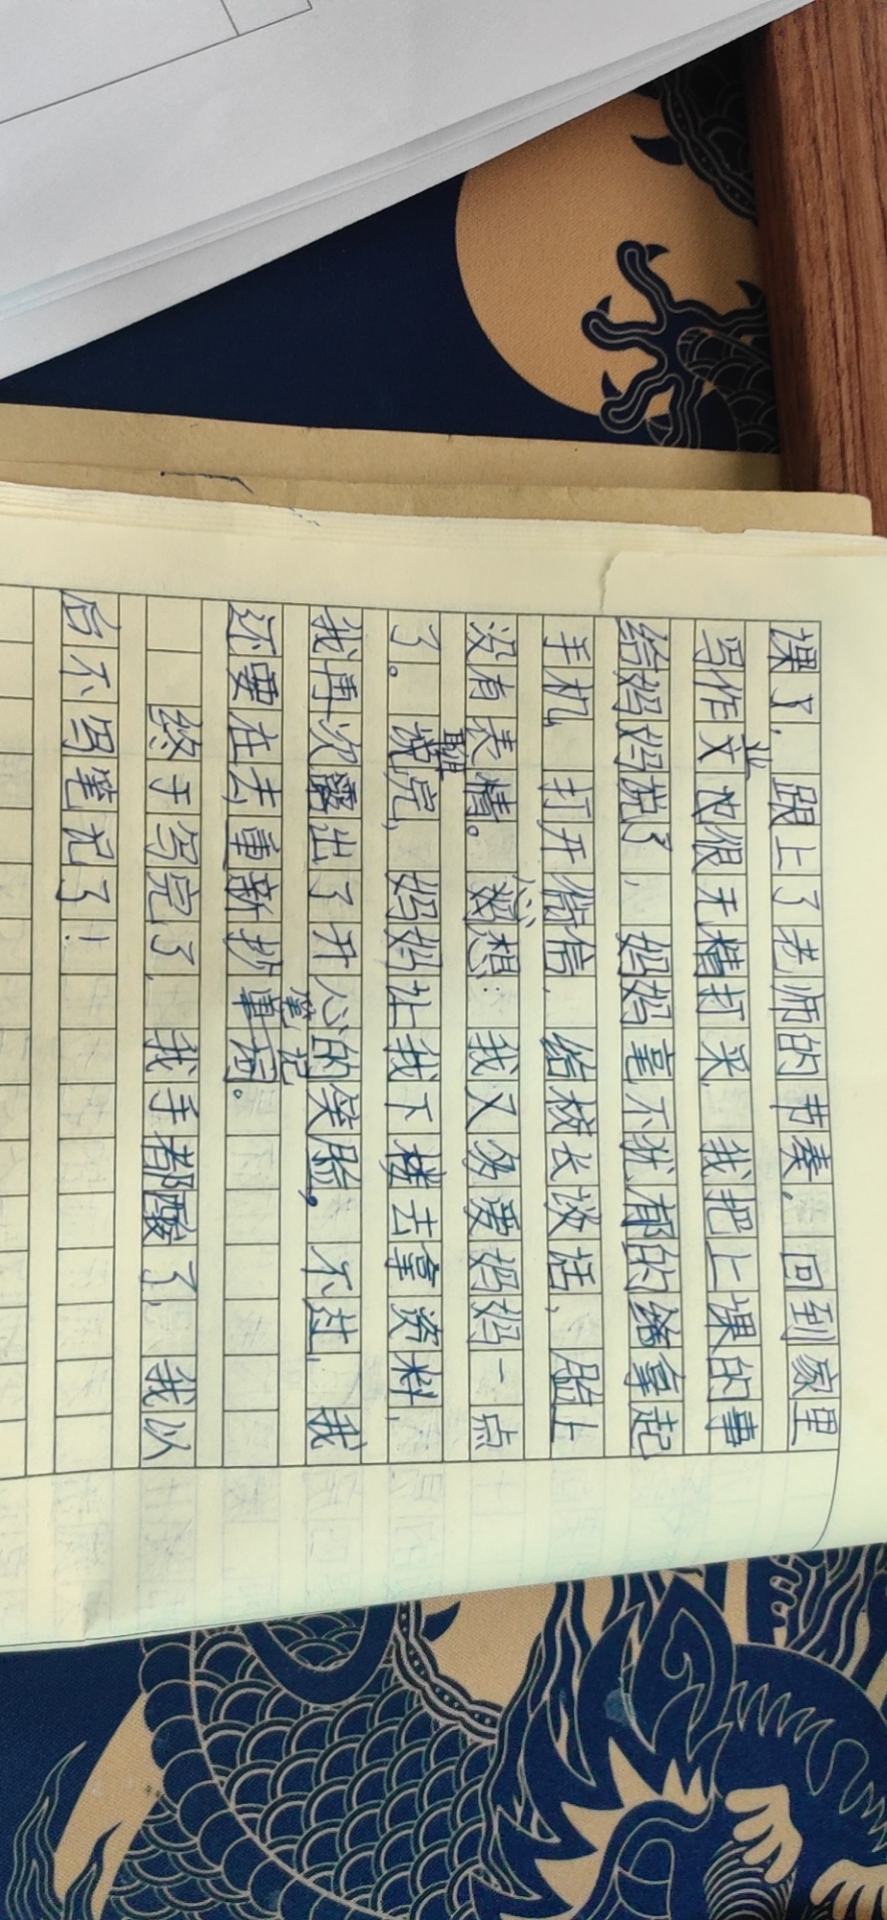 课了，跟上了老师的节奏。回到家里
写作业也很无精打采，我把上课的事
给妈妈说了，妈妈毫不犹郁的给拿起
手机，打开微信，给校长谈话，脸上
没有表情。心想：我又多爱妈妈一点
了。聊完，妈妈让我下楼去拿资料，
我再次露出了开心的笑脸，不过，我
还要在去重新抄笔记。
终于写完了，我手都酸了，我以
后不写笔记了！